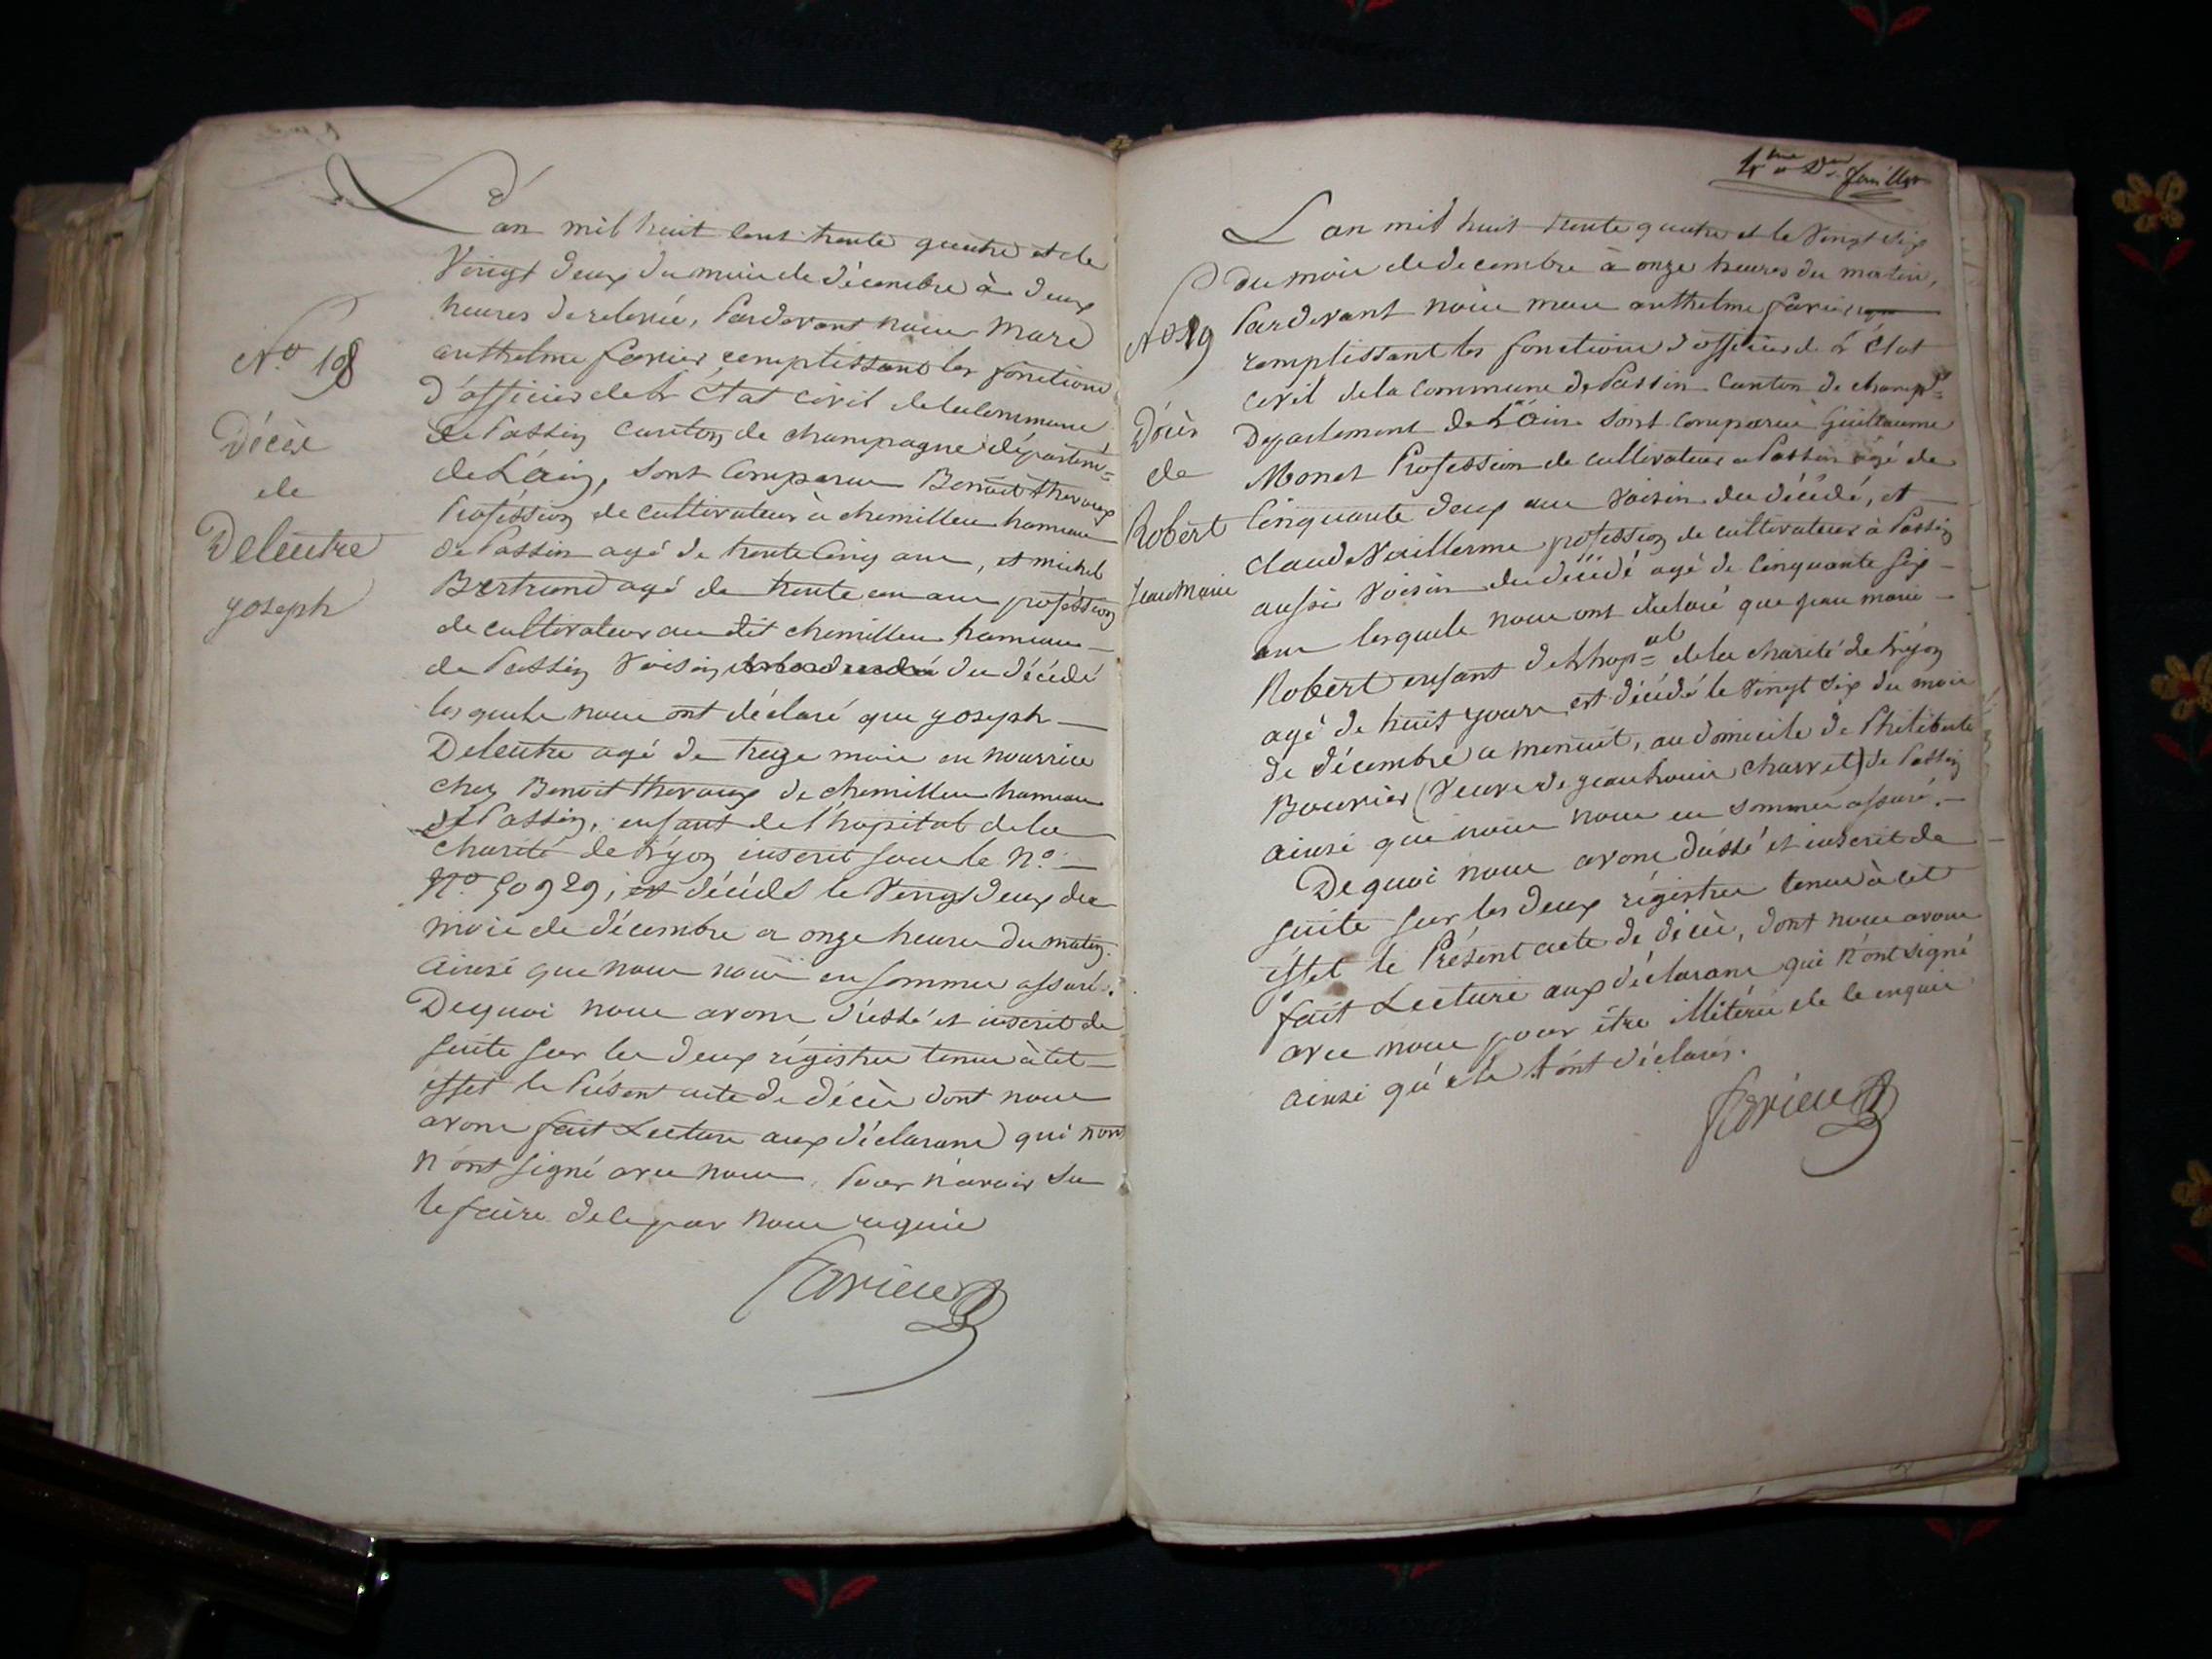 N.o 18
Décès
de
Deleutre
joseph
L'an mil huit cent trente quatre et le
Vingt deux du mois de décembre à deux
heures de relevée, Pardevant nous Mare
anthelme favier remplissant les fonctions
d'officier de l'état civil de la commune
de Passin canton de champagne départem=
de L'ain, sont comparus Benoit thevoux
Proféssion de cultivateur à chemilleu hameau
de Passin agé de trente cinq ans, et michel
Bertrand agé de trente un ans proféssion
de cultivateur au dit chemilleu hameau
de Passin Voisin du décédé
lesquels nous ont déclaré que joseph
Deleutre agé de treize mois en nourrice
chez Benoit thevoux de chemilleu hameau
de Passin, enfant de l'hopital de la
charité de Lyon inscrit sous le N.o
N.o 50929, est décédé le Vingt deux du
mois de décembre a onze heures du matin.
Ainsi que nous nous en sommes assuré.
Dequoi nous avons dréssé et inscrit de
suite sur les deux régistres tenus à cet
effet le Présent acte de décès dont nous
avons fait Lecture aux déclarans qui non
n'ont signé avec nous, Pour n'avoir su
le faire de ce par nous requis
favier
4me et Der feuillet
N.o 19
Décès
de
Robert
Jean Marie
L'an mil huit trente quatre et le Vingt six
du mois de decembre à onze heures du matin,
Pardevant nous maire anthelme favier
remplissant les fonctions d'officier de l'état
civil de la commune de Passin Canton de champe=
Departement de L'ain sont comparus Guillaume
Monet Profession de cultivateur a Passin agé de
Cinquante deux ans Voisin du décédé, et
claude Vuillerme proféssion de cultivateur à Passin
aussi Voisin du décédé agé de Cinquante six
ans lesquels nous ont déclaré que jean marie
Robert enfant de L'hop=al de la charité de Lyon
agé de huit jours est décédé le Vingt six du mois
de décembre a menuit, au domicile de Philiberte
Bouvier (Veuve de jean Louis charvet) de Passin
ainsi que nous nous en sommes assuré.
De quoi nous avons dréssé et inscrit de
suite sur les deux régistres tenus à cet
effet le Présent acte de décès, dont nous avons
fait Lecture aux déclarans qui n'ont signé
avec nous pour être illitérés de ce enquis
ainsi qu'ils l'ont déclarés.
favier